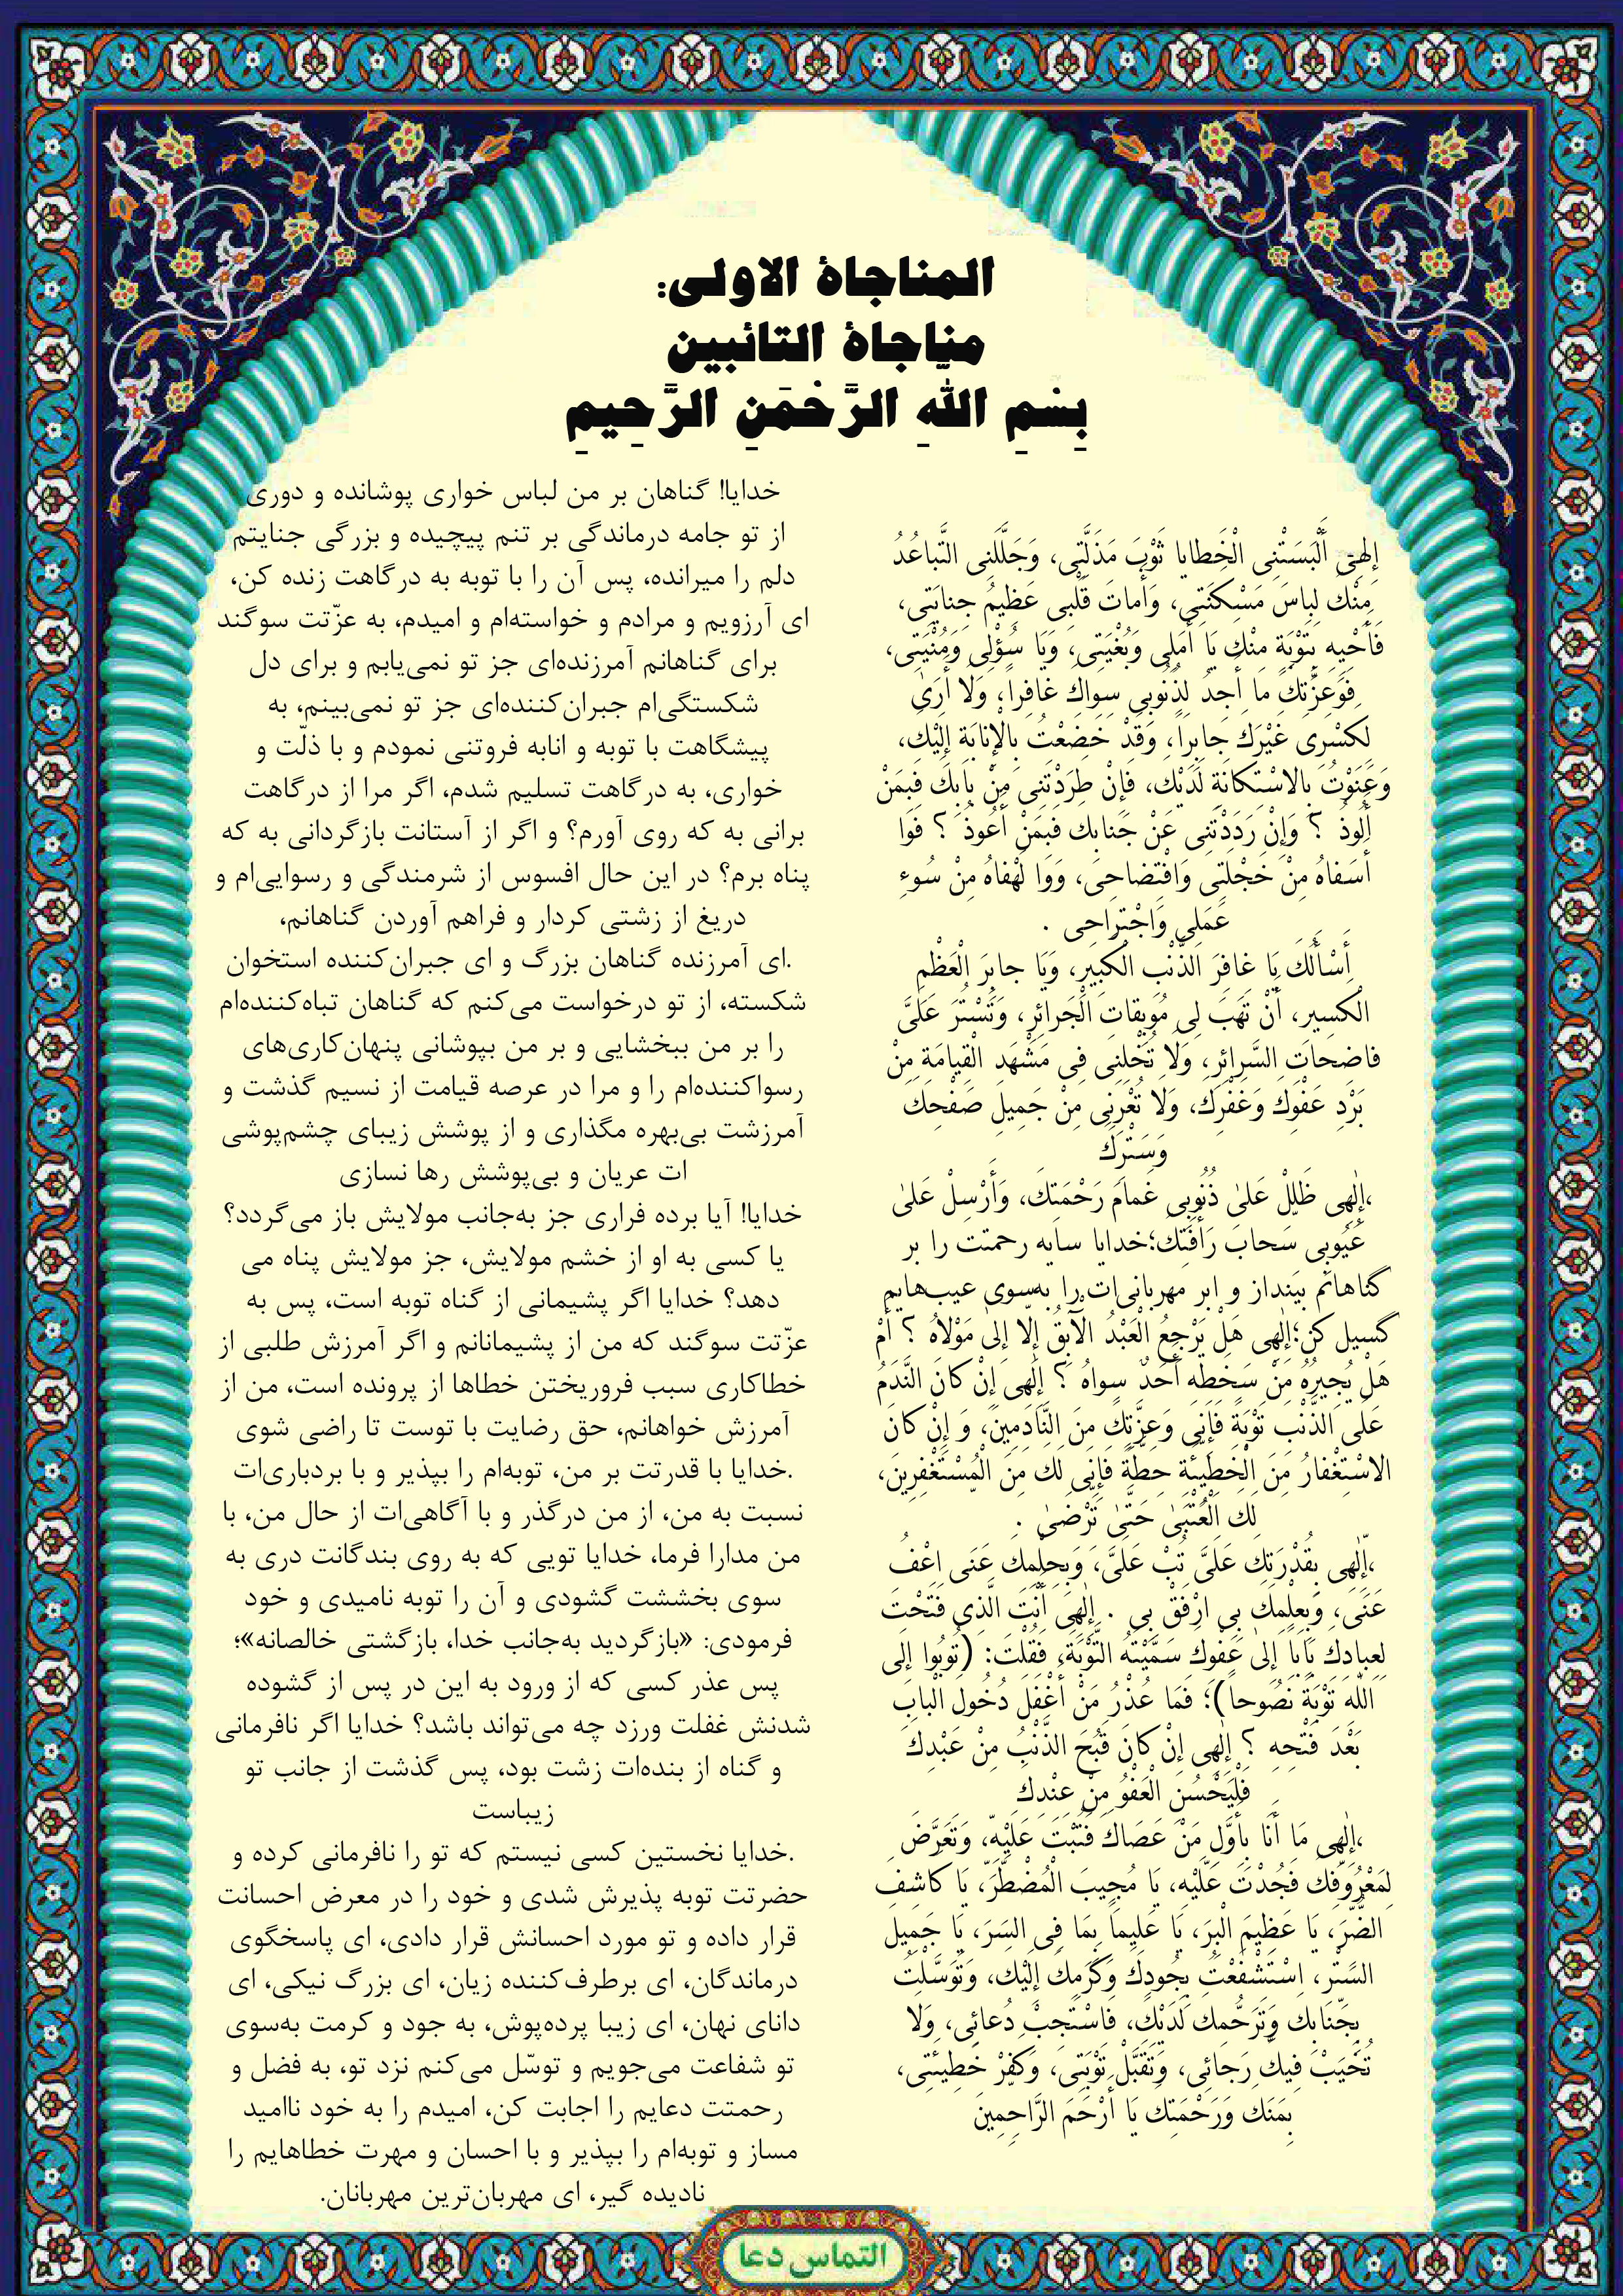 المناجاة الاولى:
مناجاة التائبين
بِسْمِ اللهِ الرَّحْمَنِ الرَّحِيمِ
إِلٰهِى أَلْبَسَتْنِى الْخَطايا ثَوْبَ مَذَلَّتِى، وَجَلَّلَنِى التَّباعُدُ
مِنْكَ لِباسَ مَسْكَنَتِى، وَأَماتَ قَلْبِى عَظِيمُ جِنايَتِى،
فَأَحْيِهِ بِتَوْبَةٍ مِنْكَ يَا أَمَلِى وَبُغْيَتِى، وَيَا سُؤْلِى وَمُنْيَتِى،
فَوَعِزَّتِكَ مَا أَجِدُ لِذُنُوبِى سِواكَ غافِراً، وَلَا أَرىٰ
لِكَسْرِى غَيْرَكَ جابِراً، وَقَدْ خَضَعْتُ بِالْإِنابَةِ إِلَيْكَ،
وَعَنَوْتُ بِالاسْتِكانَةِ لَدَيْكَ، فَإِنْ طَرَدْتَنِى مِنْ بابِكَ فَبِمَنْ
أَلُوذُ ؟ وَإِنْ رَدَدْتَنِى عَنْ جَنابِكَ فَبِمَنْ أَعُوذُ ؟ فَوا
أَسَفاهُ مِنْ خَجْلَتِى وَافْتِضاحِى، وَوَا لَهْفاهُ مِنْ سُوءِ
عَمَلِى وَاجْتِراحِى .
أَسْأَلُكَ يَا غافِرَ الذَّنْبِ الْكَبِيرِ، وَيَا جابِرَ الْعَظْمِ
الْكَسِيرِ، أَنْ تَهَبَ لِى مُوبِقاتِ الْجَرائِرِ، وَتَسْتُرَ عَلَىَّ
فاضِحاتِ السَّرائِرِ، وَلَا تُخْلِنِى فِى مَشْهَدِ الْقِيامَةِ مِنْ
بَرْدِ عَفْوِكَ وَغَفْرِكَ، وَلَا تُعْرِنِى مِنْ جَمِيلِ صَفْحِكَ
وَسَتْرِكَ
،إِلٰهِى ظَلِّلْ عَلىٰ ذُنُوبِى غَمامَ رَحْمَتِكَ، وَأَرْسِلْ عَلىٰ
عُيُوبِى سَحابَ رَأْفَتِكَ؛خدایا سایه رحمتت را بر
گناهانم بینداز و ابر مهربانی‌ات را به‌سوی عیب‌هایم
گسیل کن؛إِلٰهِى هَلْ يَرْجِعُ الْعَبْدُ الْآبِقُ إِلّا إِلىٰ مَوْلاهُ ؟ أَمْ
هَلْ يُجِيرُهُ مِنْ سَخَطِهِ أَحَدٌ سِواهُ ؟ إِلٰهِى إِنْ كانَ النَّدَمُ
عَلَى الذَّنْبِ تَوْبَةً فَإِنِّى وَعِزَّتِكَ مِنَ النَّادِمِينَ، وَ إِنْ كانَ
الاسْتِغْفارُ مِنَ الْخَطِيئَةِ حِطَّةً فَإِنِّى لَكَ مِنَ الْمُسْتَغْفِرِينَ،
لَكَ الْعُتْبىٰ حَتَّىٰ تَرْضىٰ .
،إِلٰهِى بِقُدْرَتِكَ عَلَىَّ تُبْ عَلَىَّ، وَبِحِلْمِكَ عَنِّى اعْفُ
عَنِّى، وَبِعِلْمِكَ بِى ارْفَقْ بِى . إِلٰهِى أَنْتَ الَّذِى فَتَحْتَ
لِعِبادِكَ باباً إِلىٰ عَفْوِكَ سَمَّيْتَهُ التَّوْبَةَ، فَقُلْتَ: (تُوبُوا إِلَى
اللّٰهِ تَوْبَةً نَصُوحاً)؛ فَمَا عُذْرُ مَنْ أَغْفَلَ دُخُولَ الْبابِ
بَعْدَ فَتْحِهِ ؟ إِلٰهِى إِنْ كانَ قَبُحَ الذَّنْبُ مِنْ عَبْدِكَ
فَلْيَحْسُنِ الْعَفْوُ مِنْ عِنْدِكَ
،إِلٰهِى مَا أَنَا بِأَوَّلِ مَنْ عَصَاكَ فَتُبْتَ عَلَيْهِ، وَتَعَرَّضَ
لِمَعْرُوفِكَ فَجُدْتَ عَلَيْهِ، يَا مُجِيبَ الْمُضْطَرِّ، يَا كَاشِفَ
الضُّرِّ، يَا عَظِيمَ الْبِرِّ، يَا عَلِيماً بِمَا فِى السِّرِّ، يَا جَمِيلَ
السَّتْرِ، اسْتَشْفَعْتُ بِجُودِكَ وَكَرَمِكَ إِلَيْكَ، وَتَوَسَّلْتُ
بِجَنَابِكَ وَتَرَحُّمِكَ لَدَيْكَ، فَاسْتَجِبْ دُعائِى، وَلَا
تُخَيِّبْ فِيكَ رَجَائِى، وَتَقَبَّلْ تَوْبَتِى، وَكَفِّرْ خَطِيئَتِى،
بِمَنِّكَ وَرَحْمَتِكَ يَا أَرْحَمَ الرَّاحِمِينَ
خدایا! گناهان بر من لباس خواری پوشانده و دوری
از تو جامه درماندگی بر تنم پیچیده و بزرگی جنایتم
دلم را میرانده، پس آن را با توبه به درگاهت زنده کن،
ای آرزویم و مرادم و خواسته‌ام و امیدم، به عزّتت سوگند
برای گناهانم آمرزنده‌ای جز تو نمی‌یابم و برای دل
شکستگی‌ام جبران‌کننده‌ای جز تو نمی‌بینم، به
پیشگاهت با توبه و انابه فروتنی نمودم و با ذلّت و
خواری، به درگاهت تسلیم شدم، اگر مرا از درگاهت
برانی به که روی آورم؟ و اگر از آستانت بازگردانی به که
پناه برم؟ در این حال افسوس از شرمندگی و رسوایی‌ام و
دریغ از زشتی کردار و فراهم آوردن گناهانم،
.ای آمرزنده گناهان بزرگ و ای جبران‌کننده استخوان
شکسته، از تو درخواست می‌کنم که گناهان تباه‌کننده‌ام
را بر من ببخشایی و بر من بپوشانی پنهان‌کاری‌های
رسواکننده‌ام را و مرا در عرصه قیامت از نسیم گذشت و
آمرزشت بی‌بهره مگذاری و از پوشش زیبای چشم‌پوشی
ات عریان و بی‌پوشش رها نسازی
خدایا! آیا برده فراری جز به‌جانب مولایش باز می‌گردد؟
یا کسی به او از خشم مولایش، جز مولایش پناه می
دهد؟ خدایا اگر پشیمانی از گناه توبه است، پس به
عزّتت سوگند که من از پشیمانانم و اگر آمرزش طلبی از
خطاکاری سبب فروریختن خطاها از پرونده است، من از
آمرزش خواهانم، حق رضایت با توست تا راضی شوی
.خدایا با قدرتت بر من، توبه‌ام را بپذیر و با بردباری‌ات
نسبت به من، از من درگذر و با آگاهی‌ات از حال من، با
من مدارا فرما، خدایا تویی که به روی بندگانت دری به
سوی بخششت گشودی و آن را توبه نامیدی و خود
فرمودی: «بازگردید به‌جانب خدا، بازگشتی خالصانه»؛
پس عذر کسی که از ورود به این در پس از گشوده
شدنش غفلت ورزد چه می‌تواند باشد؟ خدایا اگر نافرمانی
و گناه از بنده‌ات زشت بود، پس گذشت از جانب تو
زیباست
.خدایا نخستین کسی نیستم که تو را نافرمانی کرده و
حضرتت توبه پذیرش شدی و خود را در معرض احسانت
قرار داده و تو مورد احسانش قرار دادی، ای پاسخگوی
درماندگان، ای برطرف‌کننده زیان، ای بزرگ نیکی، ای
دانای نهان، ای زیبا پرده‌پوش، به جود و کرمت به‌سوی
تو شفاعت می‌جویم و توسّل می‌کنم نزد تو، به فضل و
رحمتت دعایم را اجابت کن، امیدم را به خود ناامید
مساز و توبه‌ام را بپذیر و با احسان و مهرت خطاهایم را
نادیده گیر، ای مهربان‌ترین مهربانان.
التماس دعا